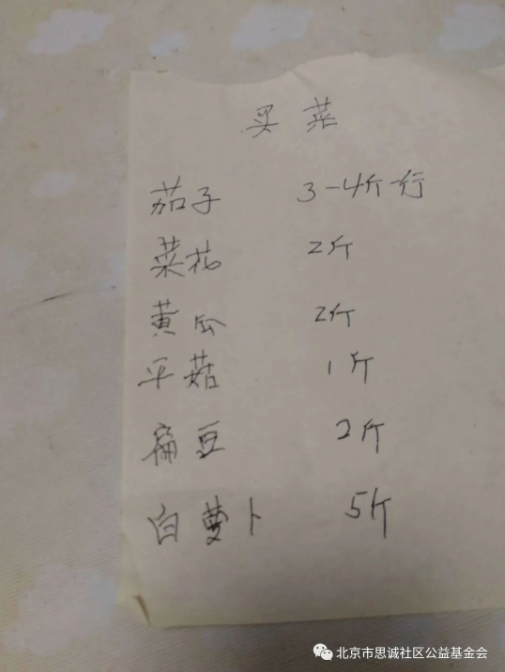 买菜
茄子 3-4斤行
菜花 2斤
黄瓜 2斤
平菇 1斤
扁豆 2斤
白萝卜 5斤
北京市思诚社区公益基金会